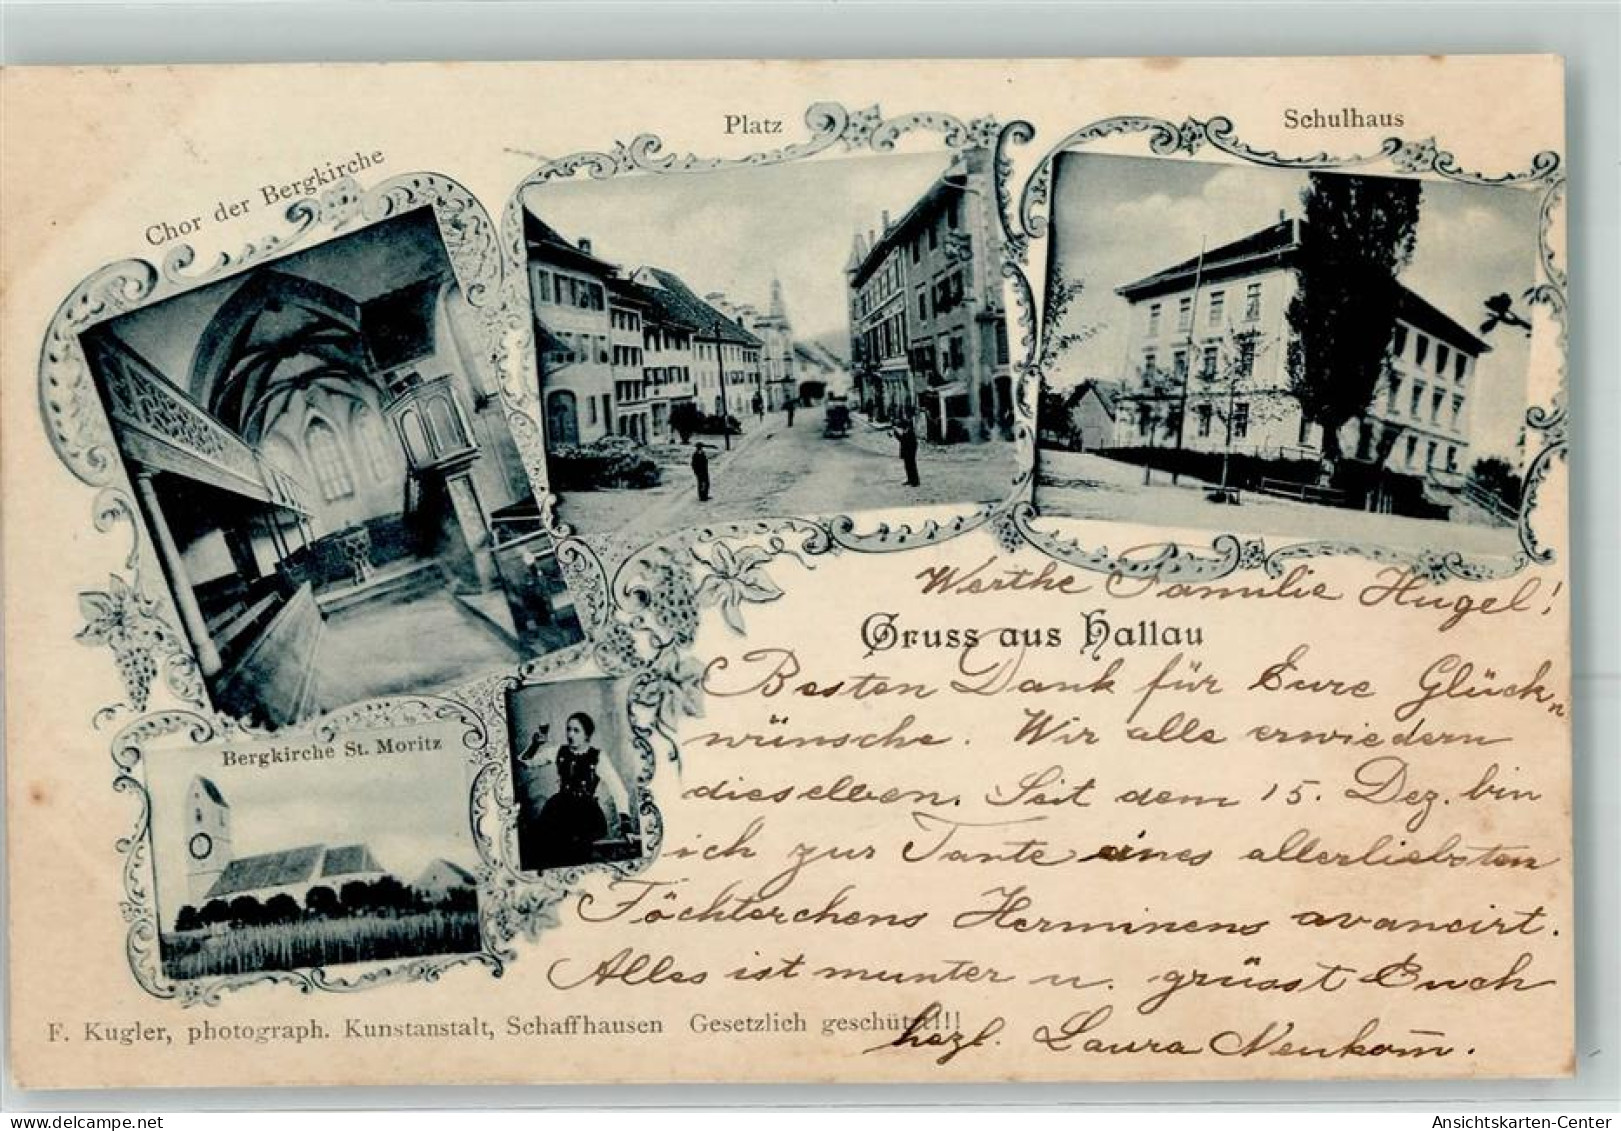 Chor der Bergkirche
Platz
Schulhaus
Bergkirche St. Moritz
Gruss aus Hallau
Werthe Familie Hugel!
Besten Dank für Eure Glück-
wünsche. Wir alle erwiedern
dieselben. Seit dem 15. Dez. bin
ich zur Tante eines allerliebsten
Töchterchens Herminens avancirt.
Alles ist munter u. grüsst Euch
hezl. Laura Neukom̅.
F. Kugler, photograph. Kunstanstalt, Schaffhausen Gesetzlich geschützt!!!
Ansichtskarten-Center